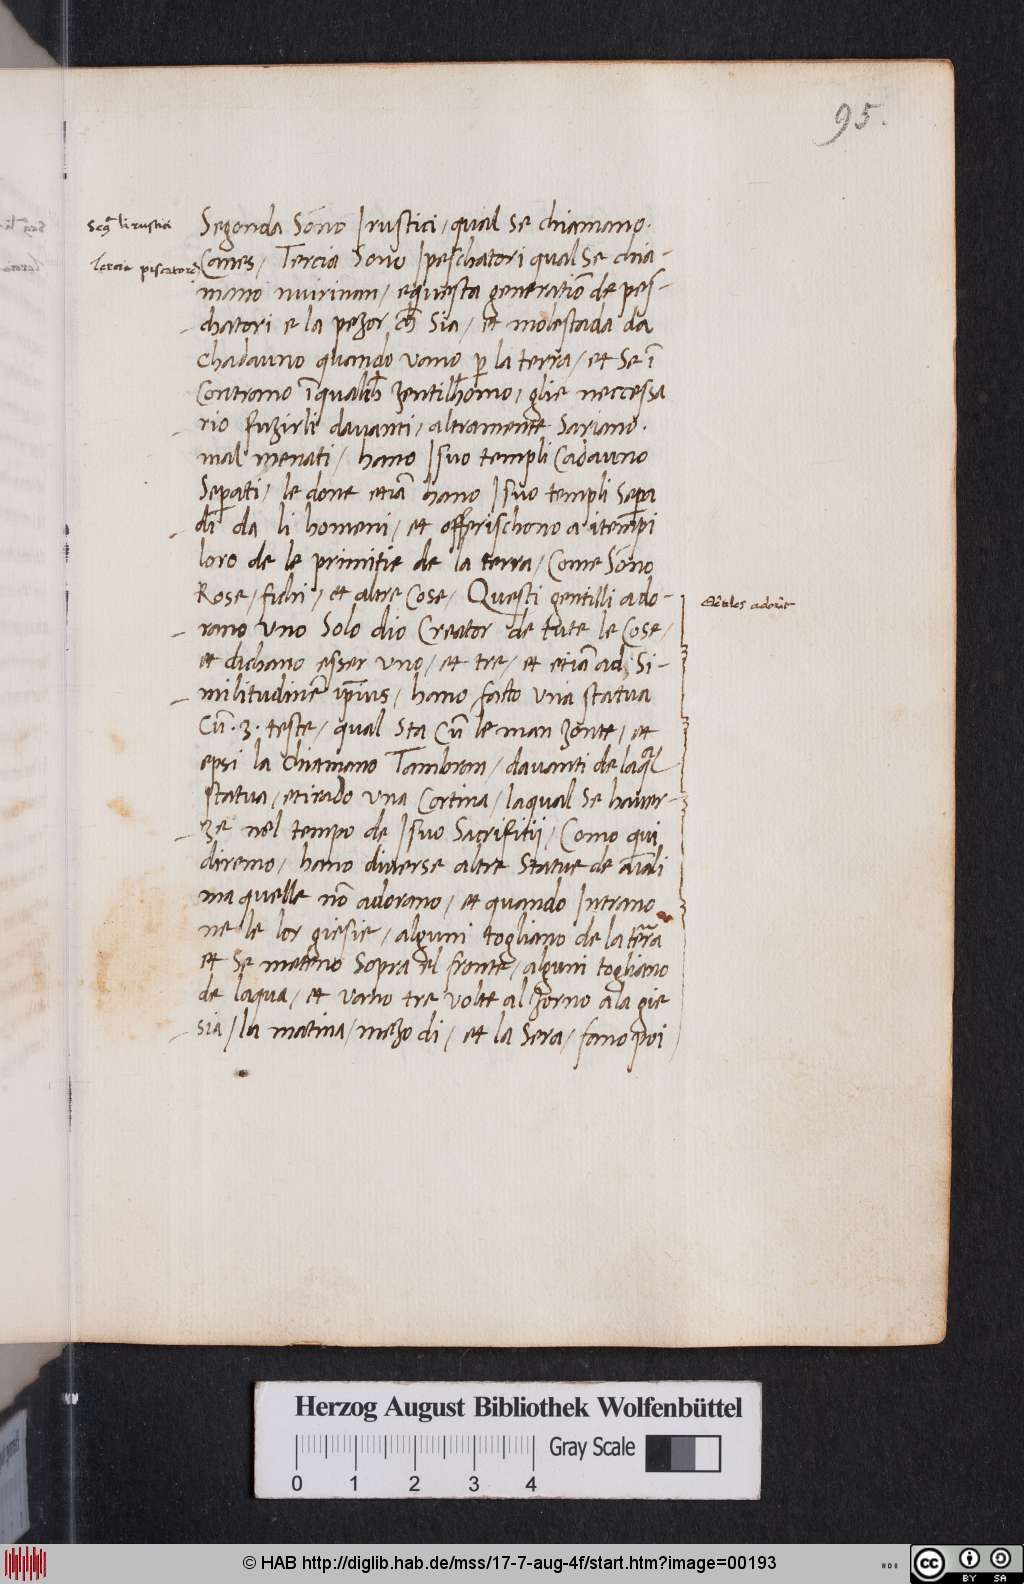 95.
Segonda Sōno I rustici, qual se chiamano.
Canes, Tercia Sono I peschatori qual Se chia-
mano nuirinan, e questa generatiō de pes-
chatori e la pezor ch̄ Sia, et molestada da
chadauno quando vano p̱ la terra, et Se ī
Contrano ī qualch̄ zentilhomo, glie neccessa
rio fuzirli davanti, altramente Sariano.
mal menati, hano I suo templi Cadauno
Sep̱ati, le done etiā hano I suo templi Sep̱a
di da li homeni, et offerischono a i tempi
loro de le primitie de la terra, Come Sōno
Rose, fichi, et altre Cose, Questi gentilli ado-
rano uno Solo dio Creator de tute le Cose,
et dichano esser uno, et tre, et etiā ad Si-
militudinē ip̄ius, hano facto una statua
Cū .3. teste, qual sta Cū le man zonte, et
epsi la chiamano Tambran, davanti de la q̄l
statua, e tirado una Cortina, laqual Se haver-
ze nel tempo de I suo Sacrifitij, Como qui
diremo, hano diverse altre Statue de aīali
ma quelle nō adorano, et quando Intrano
ne le lor giesie, alguni togliano de la terra
et Se meteno Sopra el fronte, alguni togliano
de laqua, et vano tre volte al zorno a la gie
sia, la matina, mezo di, et la Sera, fano poi
Segᵃ li rustici
Tercia piscatores
Herzog August Bibliothek Wolfenbüttel
0 1 2 3 4
Gray Scale
© HAB http://diglib.hab.de/mss/17-7-aug-4f/start.htm?image=00193
HAB
cc BY SA